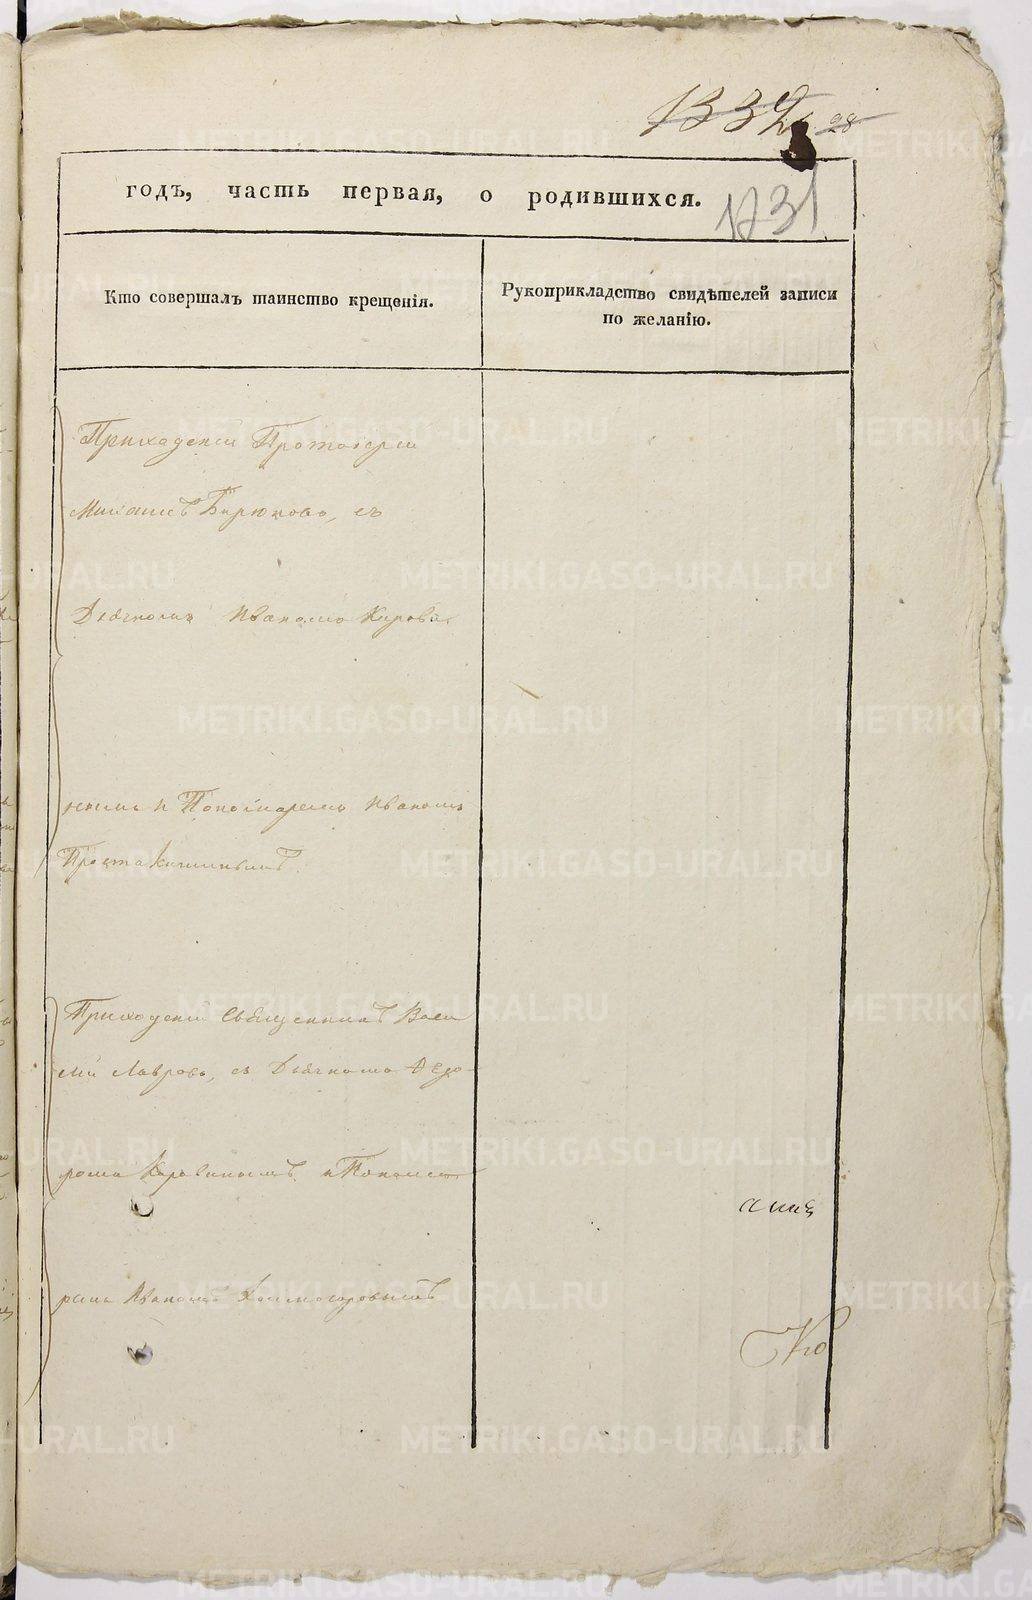 1332
28
1731
годъ, часть первая, о родившихся.
Кто совершалъ таинство крещенія.
Рукоприкладство свидѣтелей записи
по желанію.
Приходскій Протоіерей
Михаилъ Бирюковъ, съ
Дьячкомъ Иваномъ
и Пономаремъ Иваномъ
Приходскій Священникъ Васи
лій Лавровъ, съ Дьячкомъ Ѳедо-
ромъ и Понома
ремъ Иваномъ Холмогоровымъ
METRIKI.GASO-URAL.RU